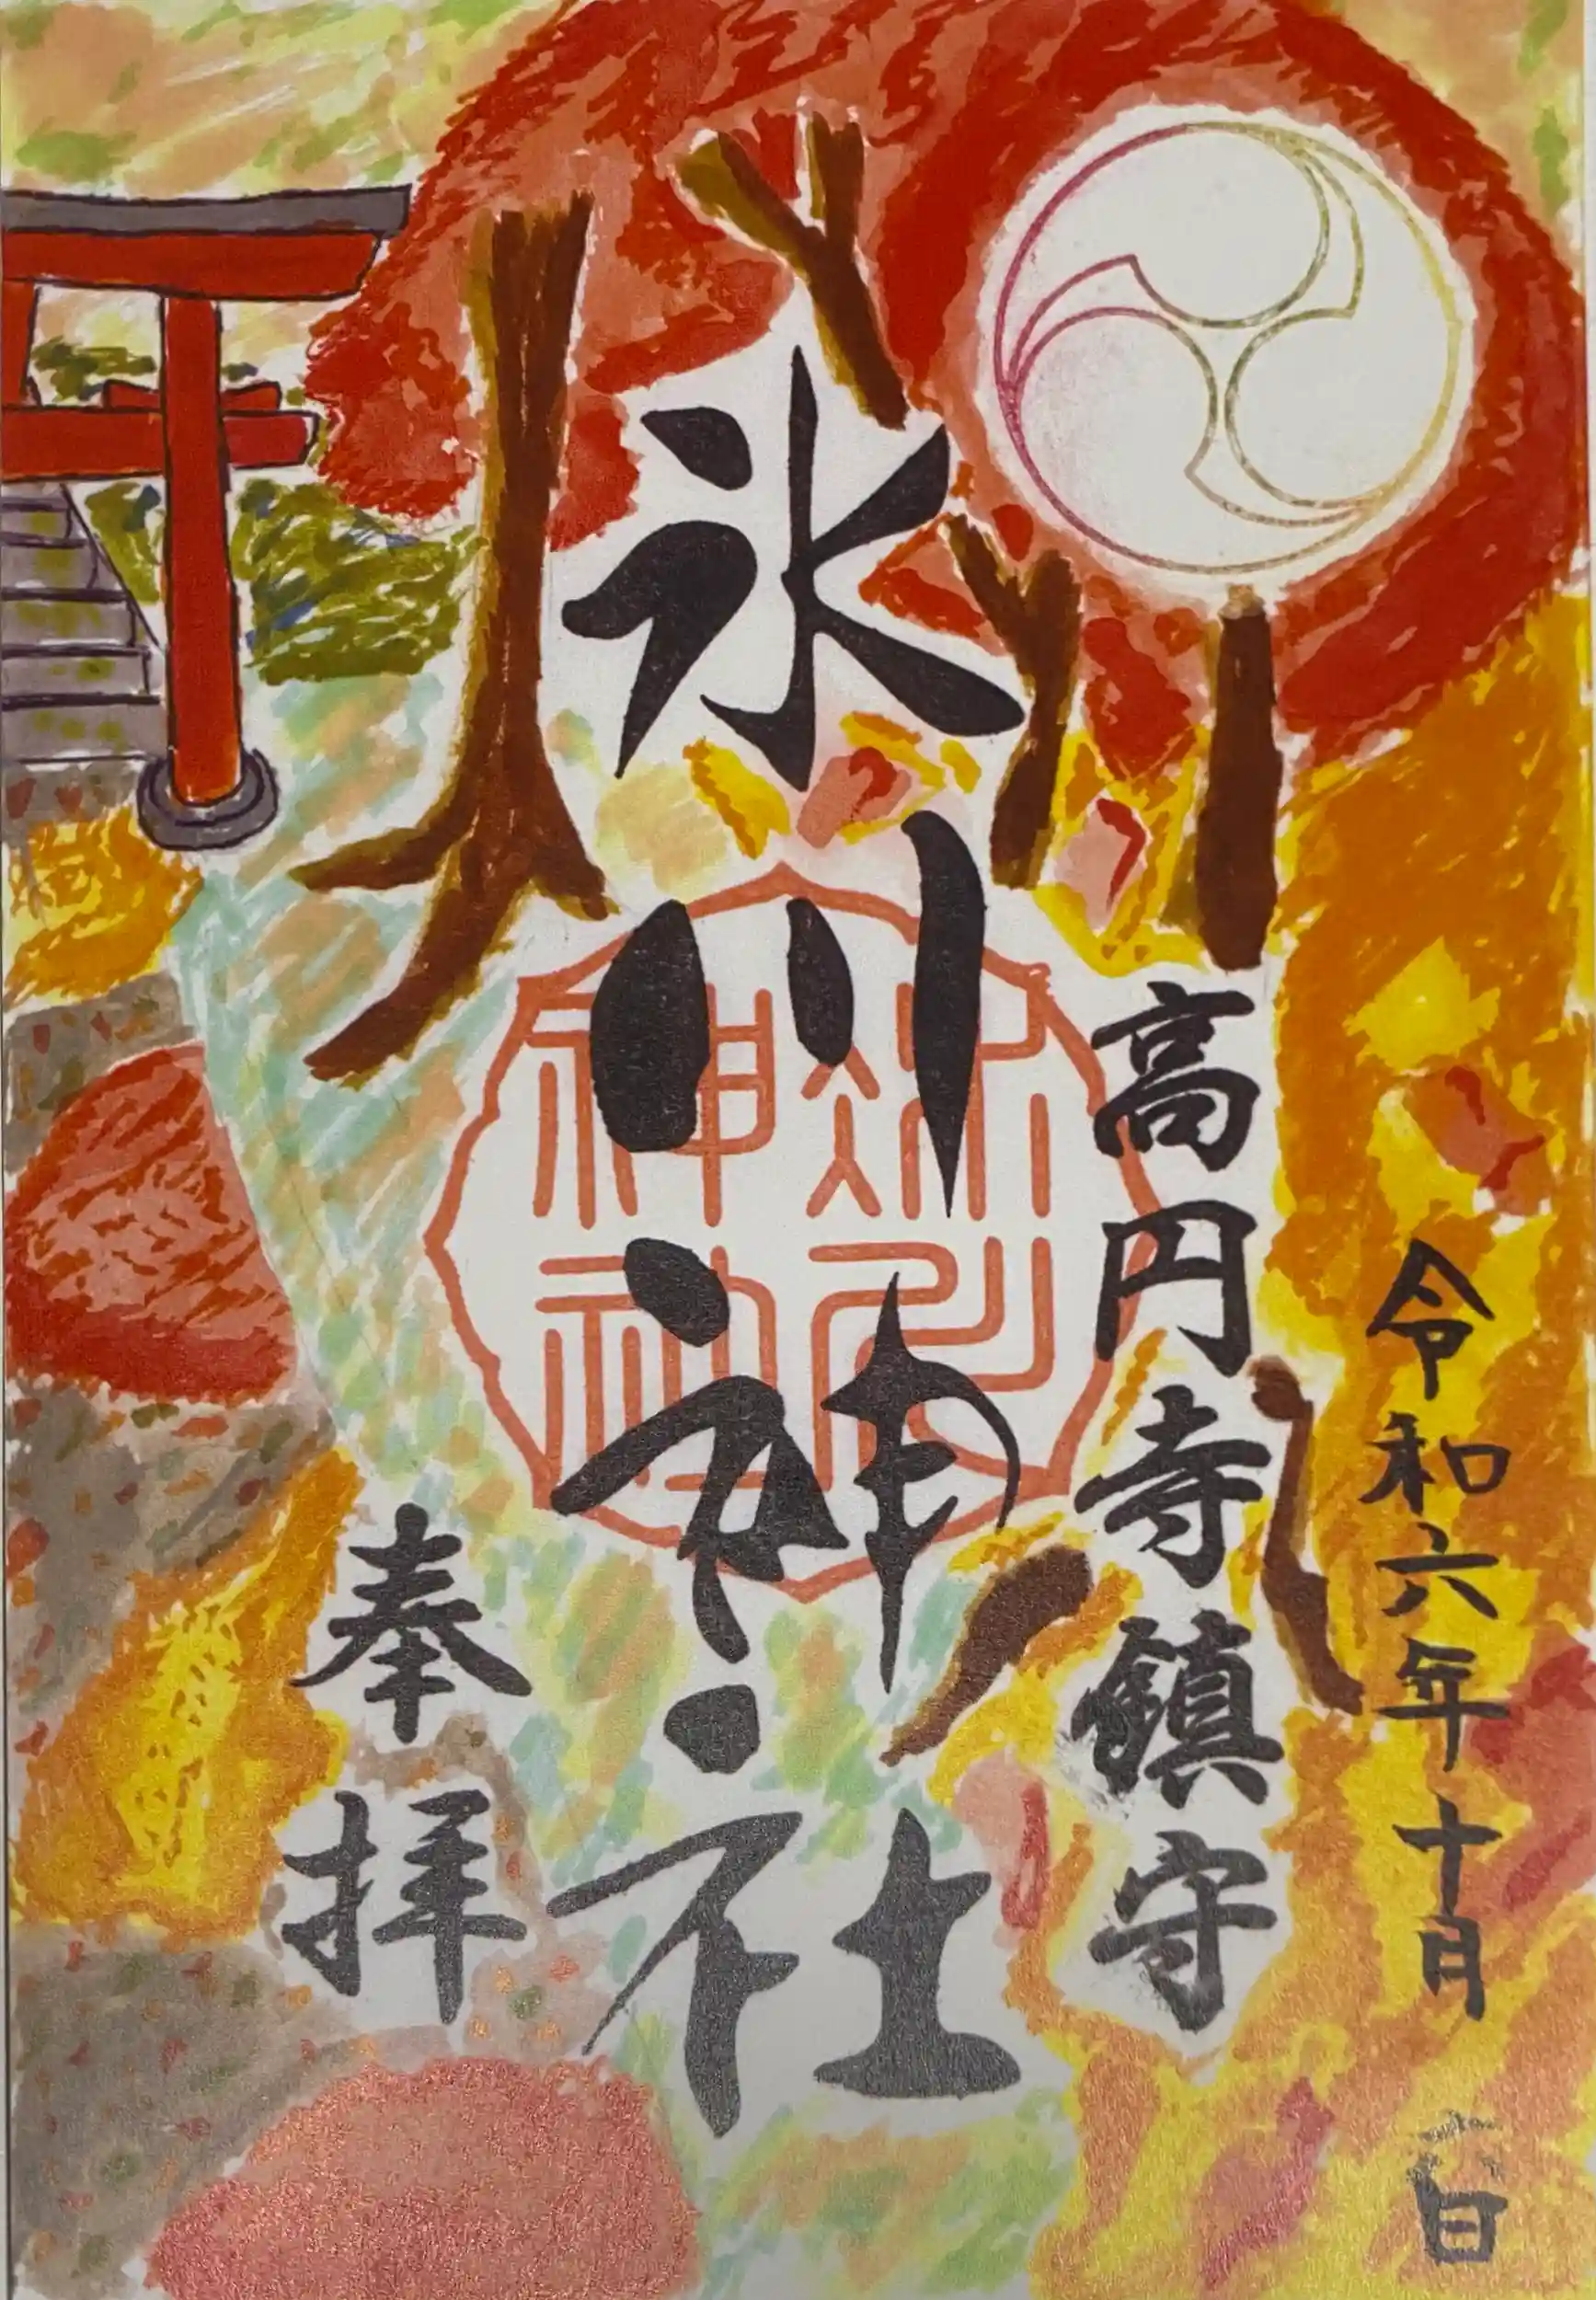 令和六年十月六日
高円寺鎮守
氷川神社
氷川神社
奉拝